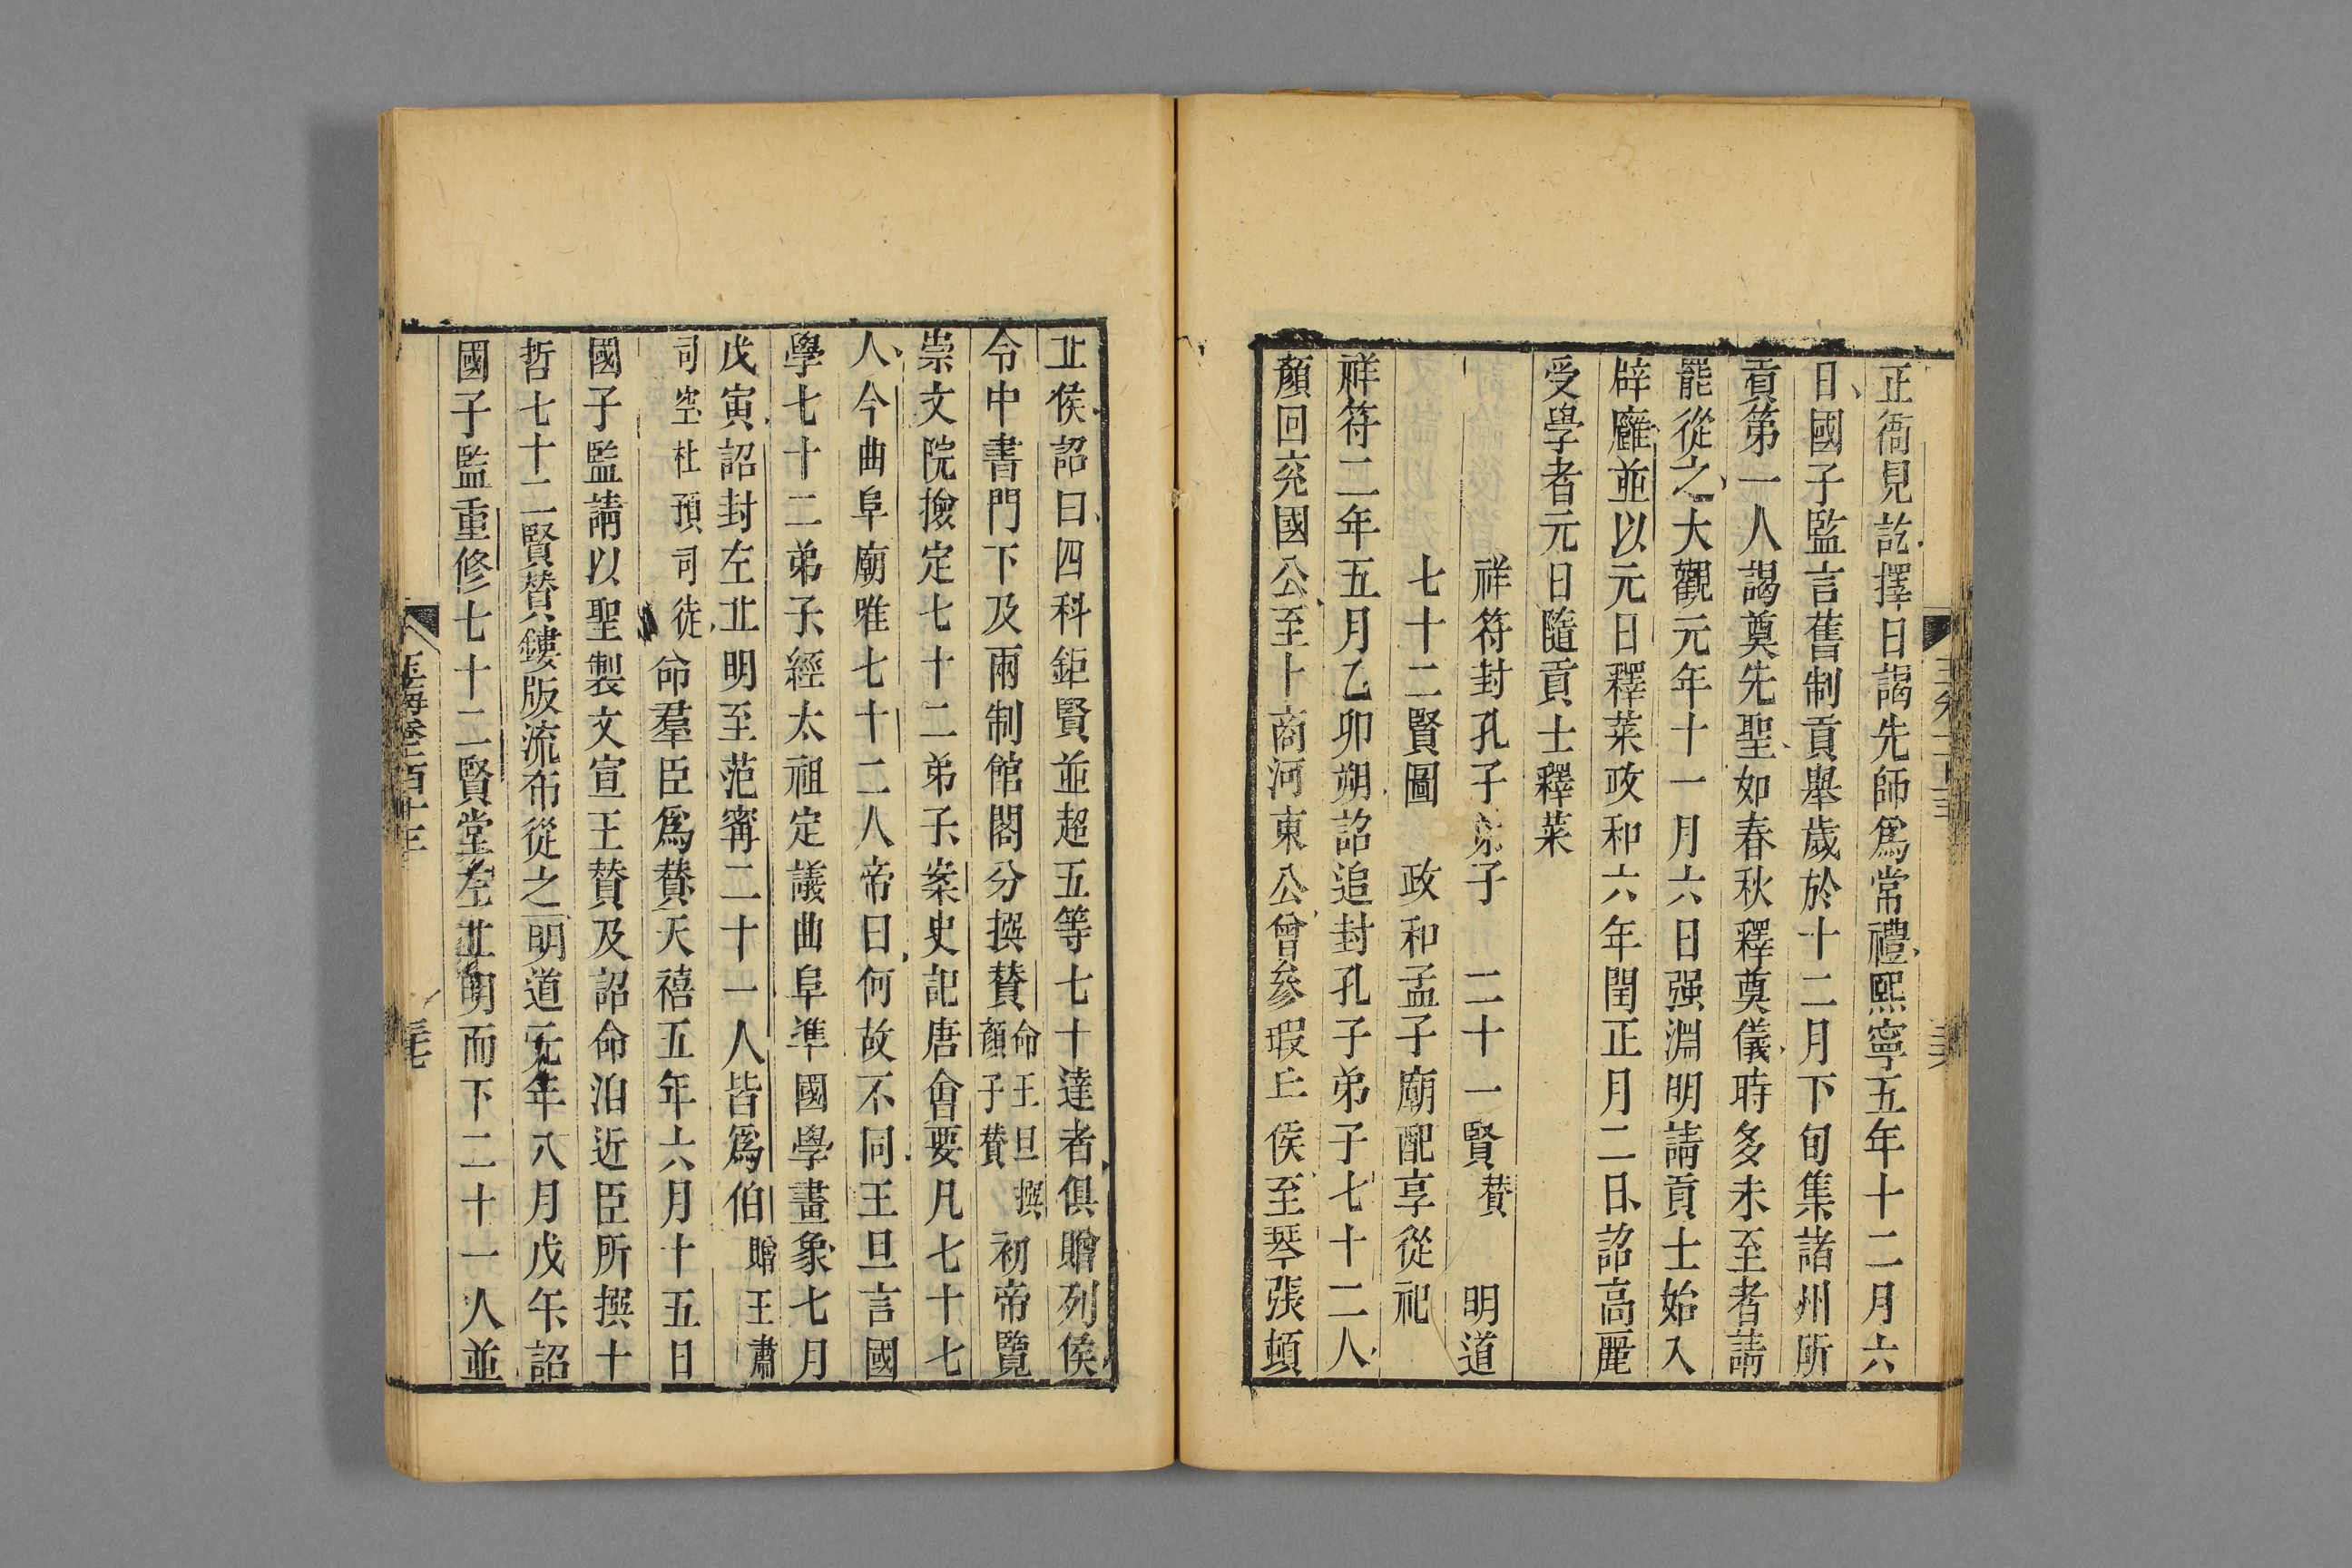 正衙見訖擇日謁先師爲常禮熙寧五年十二月六
日國子監言舊制貢舉歲於十二月下旬集諸州所
貢第一人謁奠先聖如春秋釋奠儀時多未至者請
罷從之大觀元年十一月六日强淵明請貢士始入
辟廱並以元日釋菜政和六年閏正月二日詔高麗
受學者元日隨貢士釋菜
祥符封孔子弟子　二十一賢贊　明道
七十二賢圖　政和孟子廟配享從祀
祥符二年五月乙卯朔詔追封孔子弟子七十二人
顏回兖國公至卜商河東公曾參瑕丘侯至琴張頓
丘侯詔曰四科鉅賢並超五等七十達者俱贈列侯
令中書門下及兩制館閣分撰贊命王旦撰顏子贊初帝覽
崇文院撿定七十二弟子案史記唐會要凡七十七
人今曲阜廟唯七十二人帝曰何故不同王旦言國
學七十二弟子經太祖定議曲阜準國學畫象七月
戊寅詔封左丘明至范甯二十一人皆爲伯贈王肅
司空杜預司徒命羣臣爲贊天禧五年六月十五日
國子監請以聖製文宣王贊及詔命洎近臣所撰十
哲七十二賢贊鏤版流布從之明道元年八月戊午詔
國子監重修七十二賢堂左丘明而下二十一人並
玉海卷一百十三